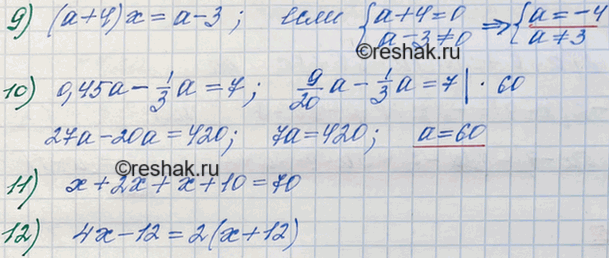 9) (a+4)x = a-3; если {a+4=0 ⇒ {a=-4
a-3≠0 a≠3
©reshak.ru
10) 0,45a - 1/3 a = 7; 9/20 a - 1/3 a = 7 | · 60
27a-20a=420; 7a=420; a=60
©reshak.ru
11) x+2x+x+10=70
12) 4x-12=2(x+12)